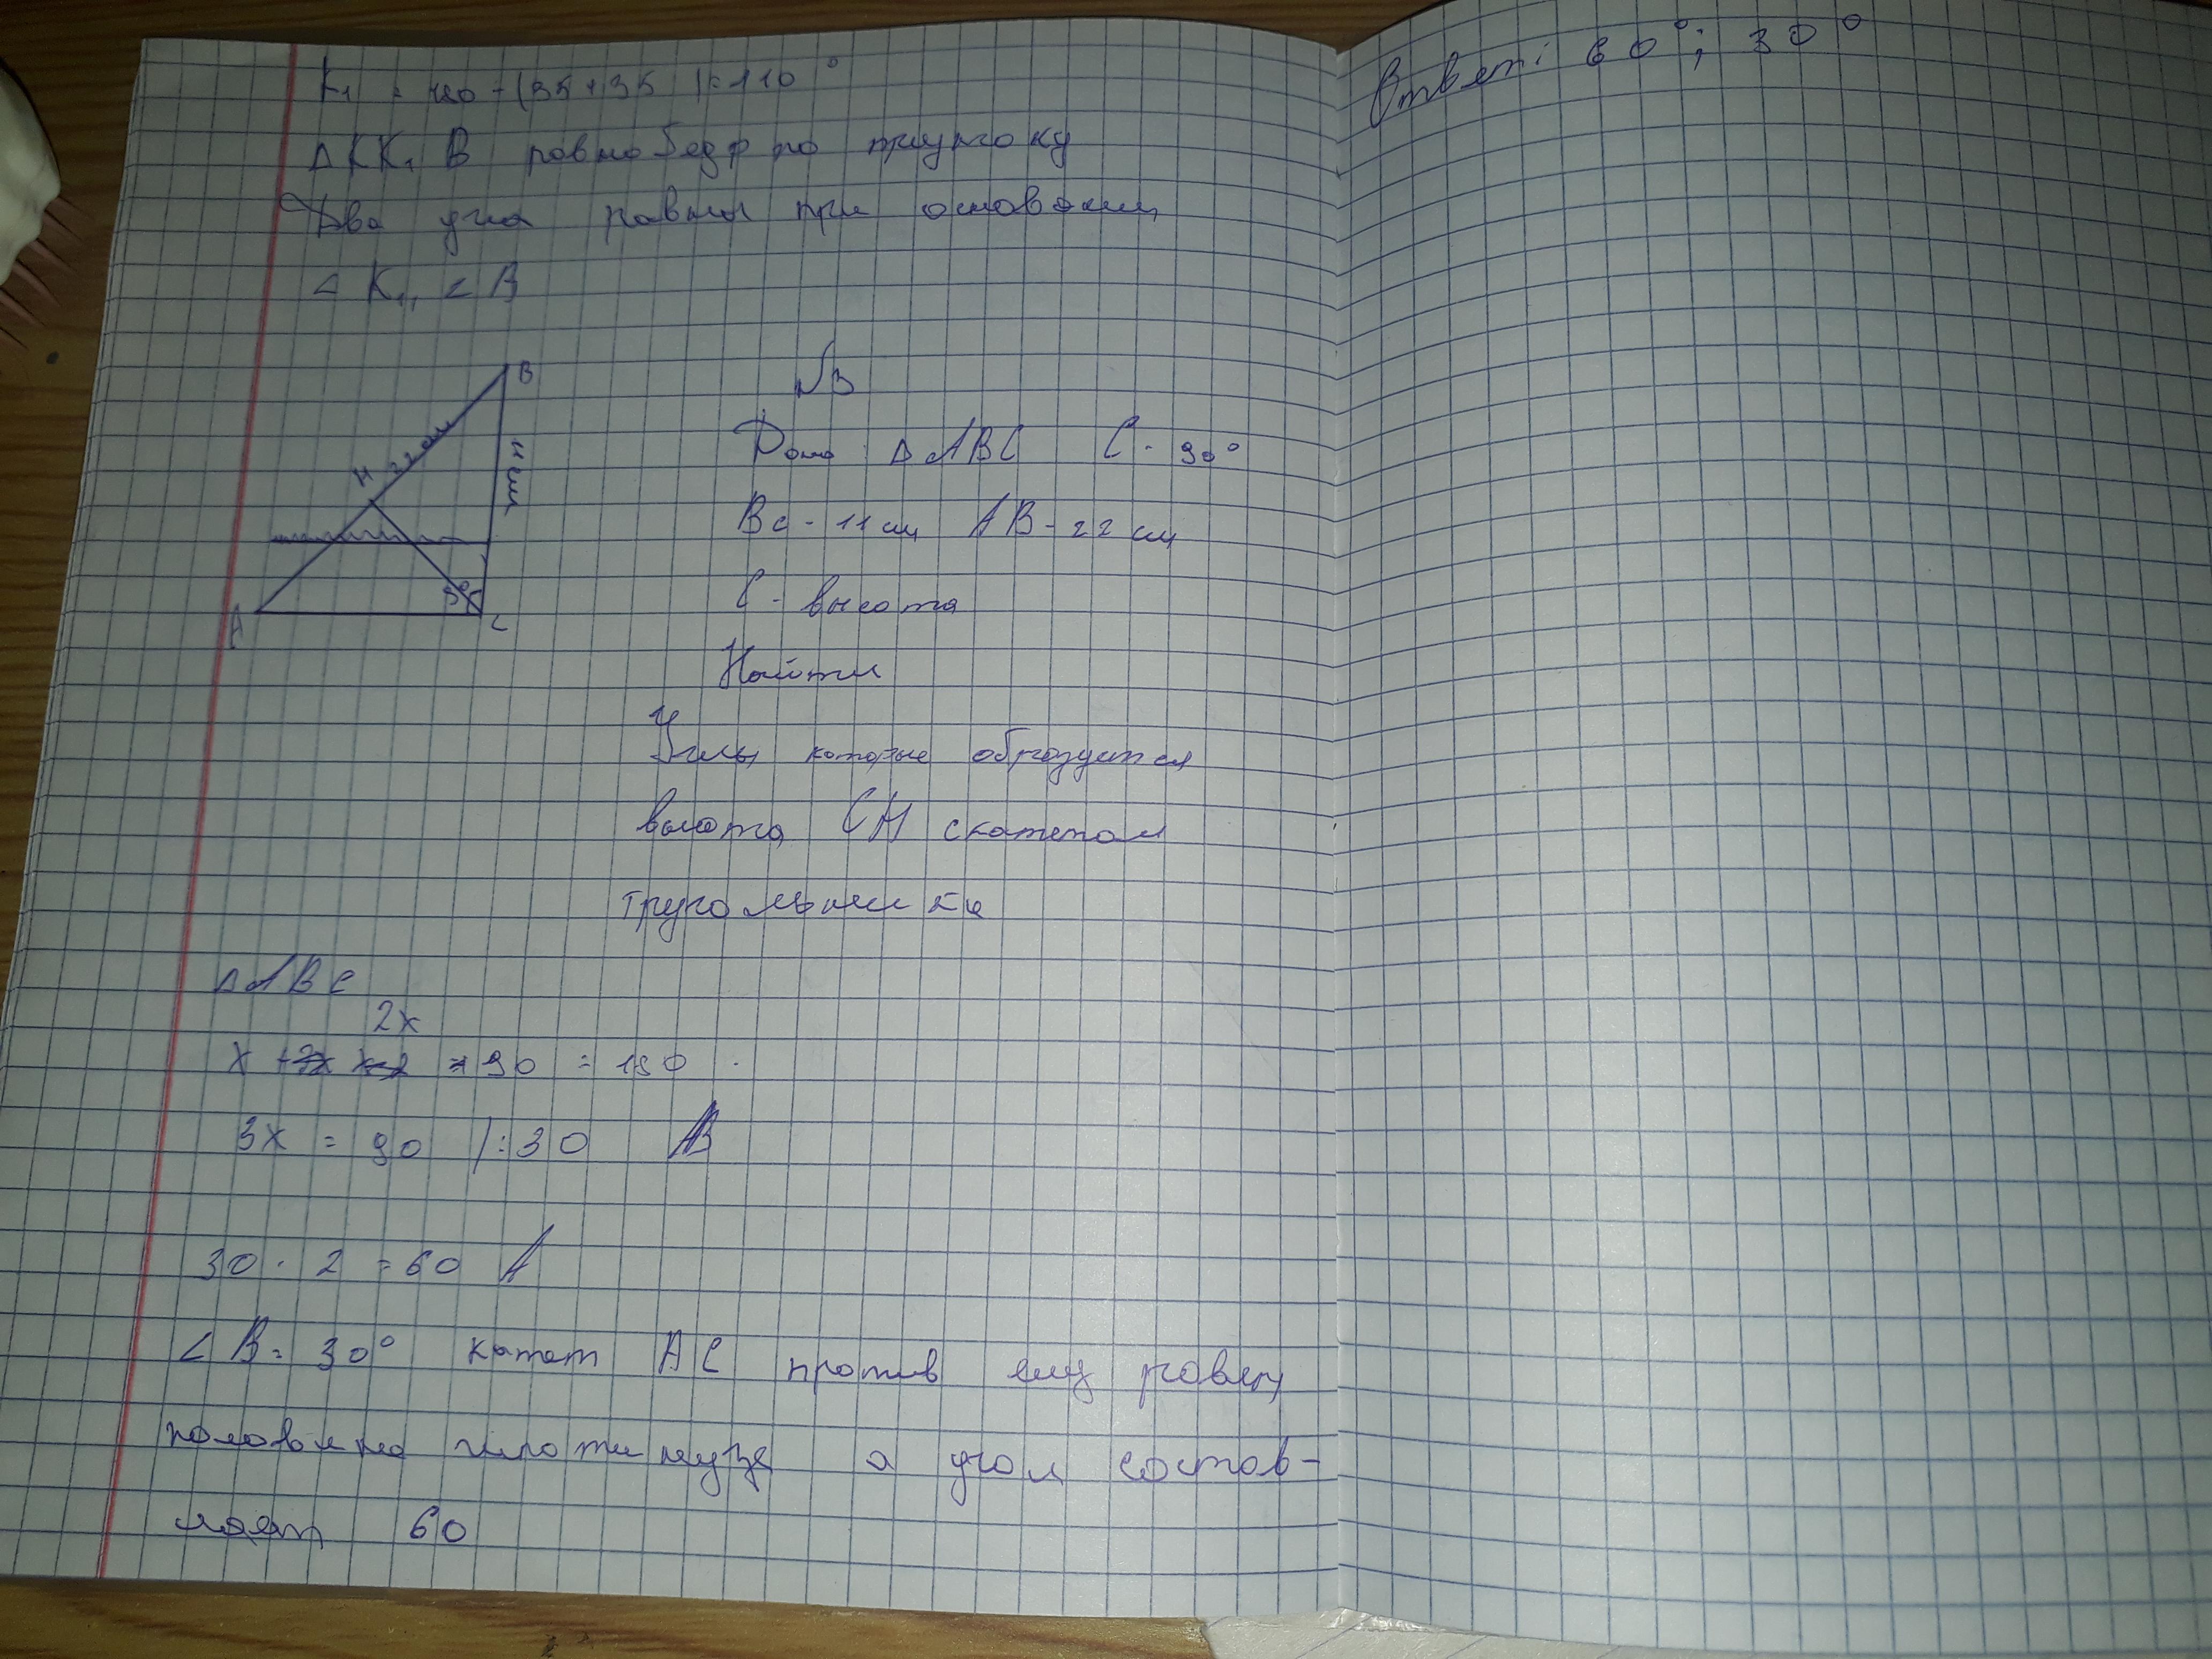 K₁ = 180 - (35 + 35) = 110°
Δ KK₁ B равнобедр по
Два угла равны при основании
∠ K₁, ∠ B
B
22 см
11 см
H
90°
A
C
N3
Дано: Δ ABC C - 90°
Bc - 11 см AB - 22 см
C - высота
Найти
Углы которые образуется
высота CH с катетом
Δ ABC
2x
x + 90 = 180
3x = 90 / : 30
30 · 2 = 60 A
∠ B = 30° катет AC против ему равен
половина гипотинузе а угол состав-
ляет 60
Ответ: 60°; 30°